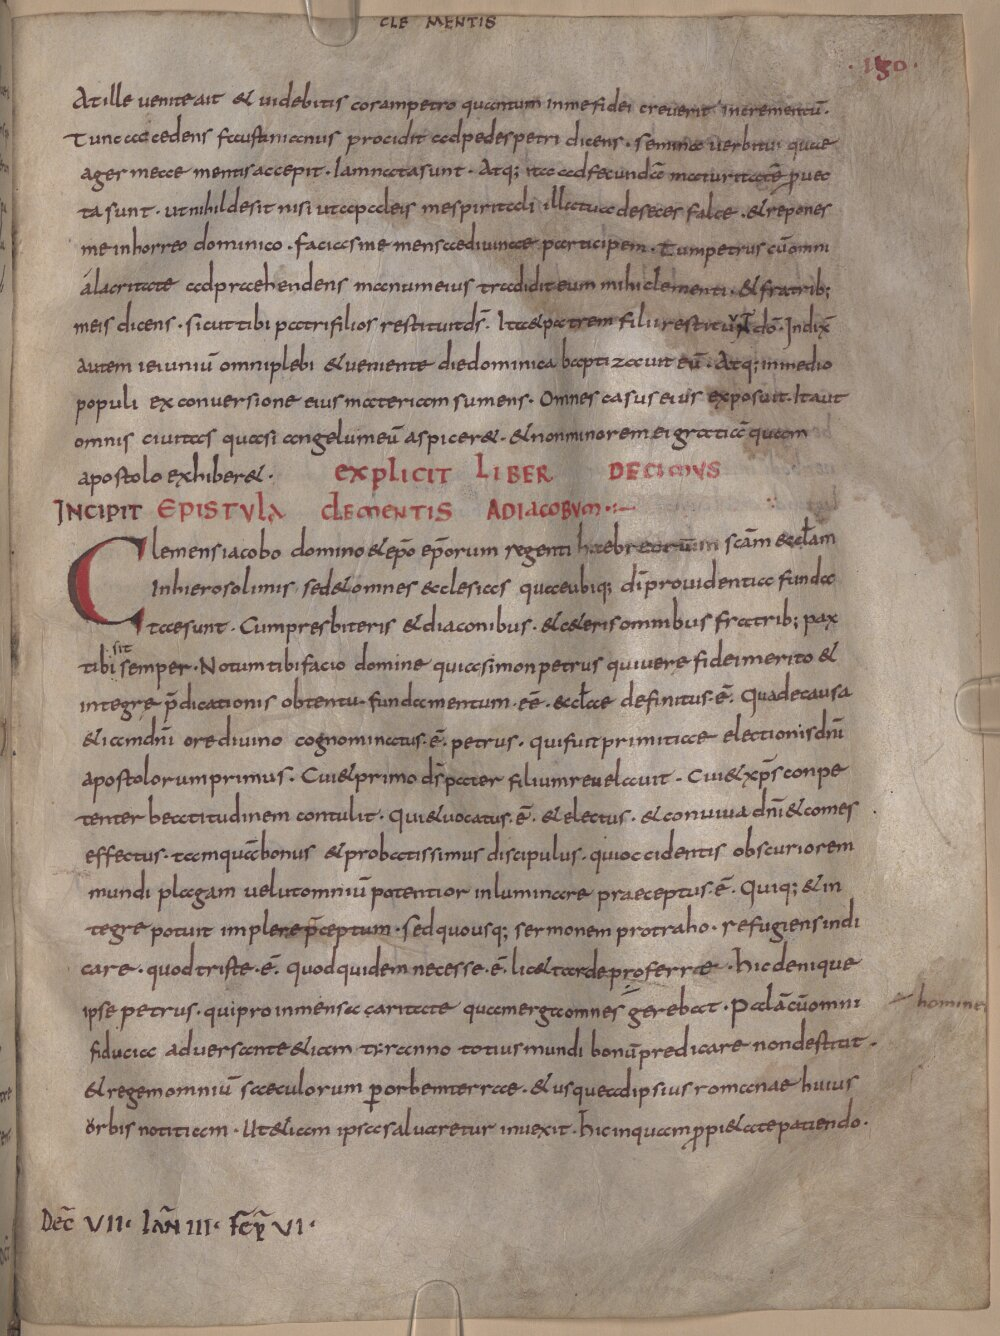 CLEMENTIS
· 150 ·
At ille venite ait & videbitis coram petro quantum in me fidei creverit incrementū.
Tunc accedens faustinianus procidit ad pedes petri dicens · semina verbi tui quae
ager meae mentis accepit · Iam nata sunt · Atq; ita ad fecundā maturitatē ꝓvec
ta sunt · ut nihil desit nisi ut a paleis me spiritali illa tua deseces falce · & repones
me in horreo dominico · facias me mensae divinae participem · Tum petrus cū omni
alacritate adpraehendens manum eius tradidit eum mihi clementi · & fratrib;
meis dicens · sicut tibi patri filios restituit d̄s · Ita & patrem filii restituūt dō · Indix̄
autem ieiuniū omni plebi & veniente die dominica baptizavit eū · Atq; in medio
populi ex conversione eius materiam sumens · Omnes casus eius exposuit · Ita ut
omnis civitas quasi angelum eū aspicer& · & non minorem ei gratiā quam
apostolo exhiber& · EXPLICIT LIBER DECIMUS
INCIPIT EPISTULA CLEMENTIS AD IACOBUM
Clemens iacobo domino & ep̄o ep̄orum regenti hebreorum sc̄am eccl̄am
In hierosolimis · sed & omnes ecclesias quae ubiq; d̄i providentia funda
tae sunt · Cum presbiteris & diaconibus · & c&eris omnibus fratrib; pax
sit
tibi semper · Notum tibi facio domine quia simon petrus qui verę fidei merito &
integrę p̄dicationis obtentu · fundamentum · eē · eccl̄ae definitus · ē · Qua de causa
& iam dn̄i ore divino cognominatus · ē · petrus · qui fuit primitiae electionis dn̄i
apostolorum primus · Cui & primo d̄s pater filium revelavit · Cui & xp̄s conpe
tenter beatitudinem contulit · Qui & vocatus · ē · & electus · & conviva dn̄i & comes
effectus · tamquā bonus & probatissimus discipulus · qui occidentis obscuriorem
mundi plagam velut omniū potentior inluminare praeceptus · ē · Quiq; & in
tegre potuit implere p̄ceptum · Sed quousq; sermonem protraho · refugiens indi
care · quod triste · ē · Quod quidem necesse · ē · lic& tarde proferre · Hic denique
ipse petrus · qui pro inmensa caritate quam erga omnes gerebat · Palā cū omni
homines
fiducia adversante & iam tyranno totius mundi bonū predicare non destitit ·
& regem omniū saeculorum ꝑ orbem terrae · & usque ad ipsius romanae huius
orbis notitiam · Ut & iam ipsa salvaretur invexit · hic inquam ꝓ pi&ate patiendo ·
Dec̄ VII · Iān III · Fēƀ VI ·